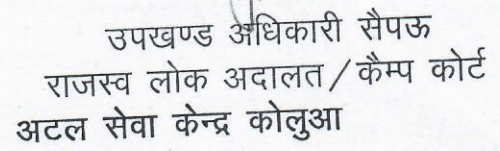 उपखण्ड अधिकारी सैपऊ
राजस्व लोक अदालत/कैम्प कोर्ट
अटल सेवा केन्द्र कोलुआ